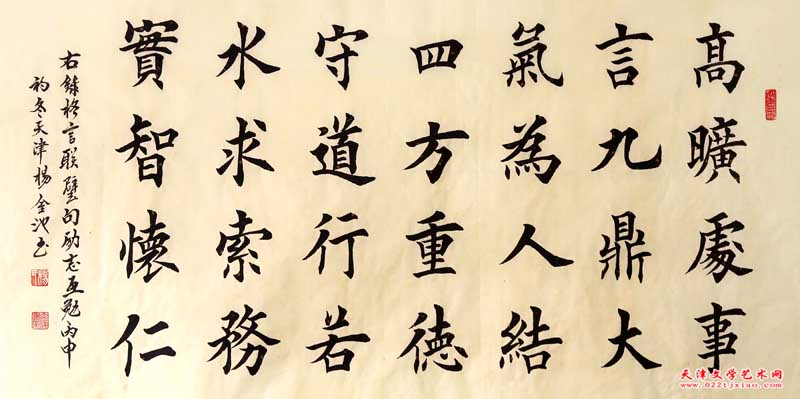 高曠處事
言九鼎大
氣為人結
四方重德
守道行若
水求索務
實智懷仁
右録格言联璧句励志互勉丙申
初冬天津楊金池书
天津文学艺术网
www.022tjxiao.com